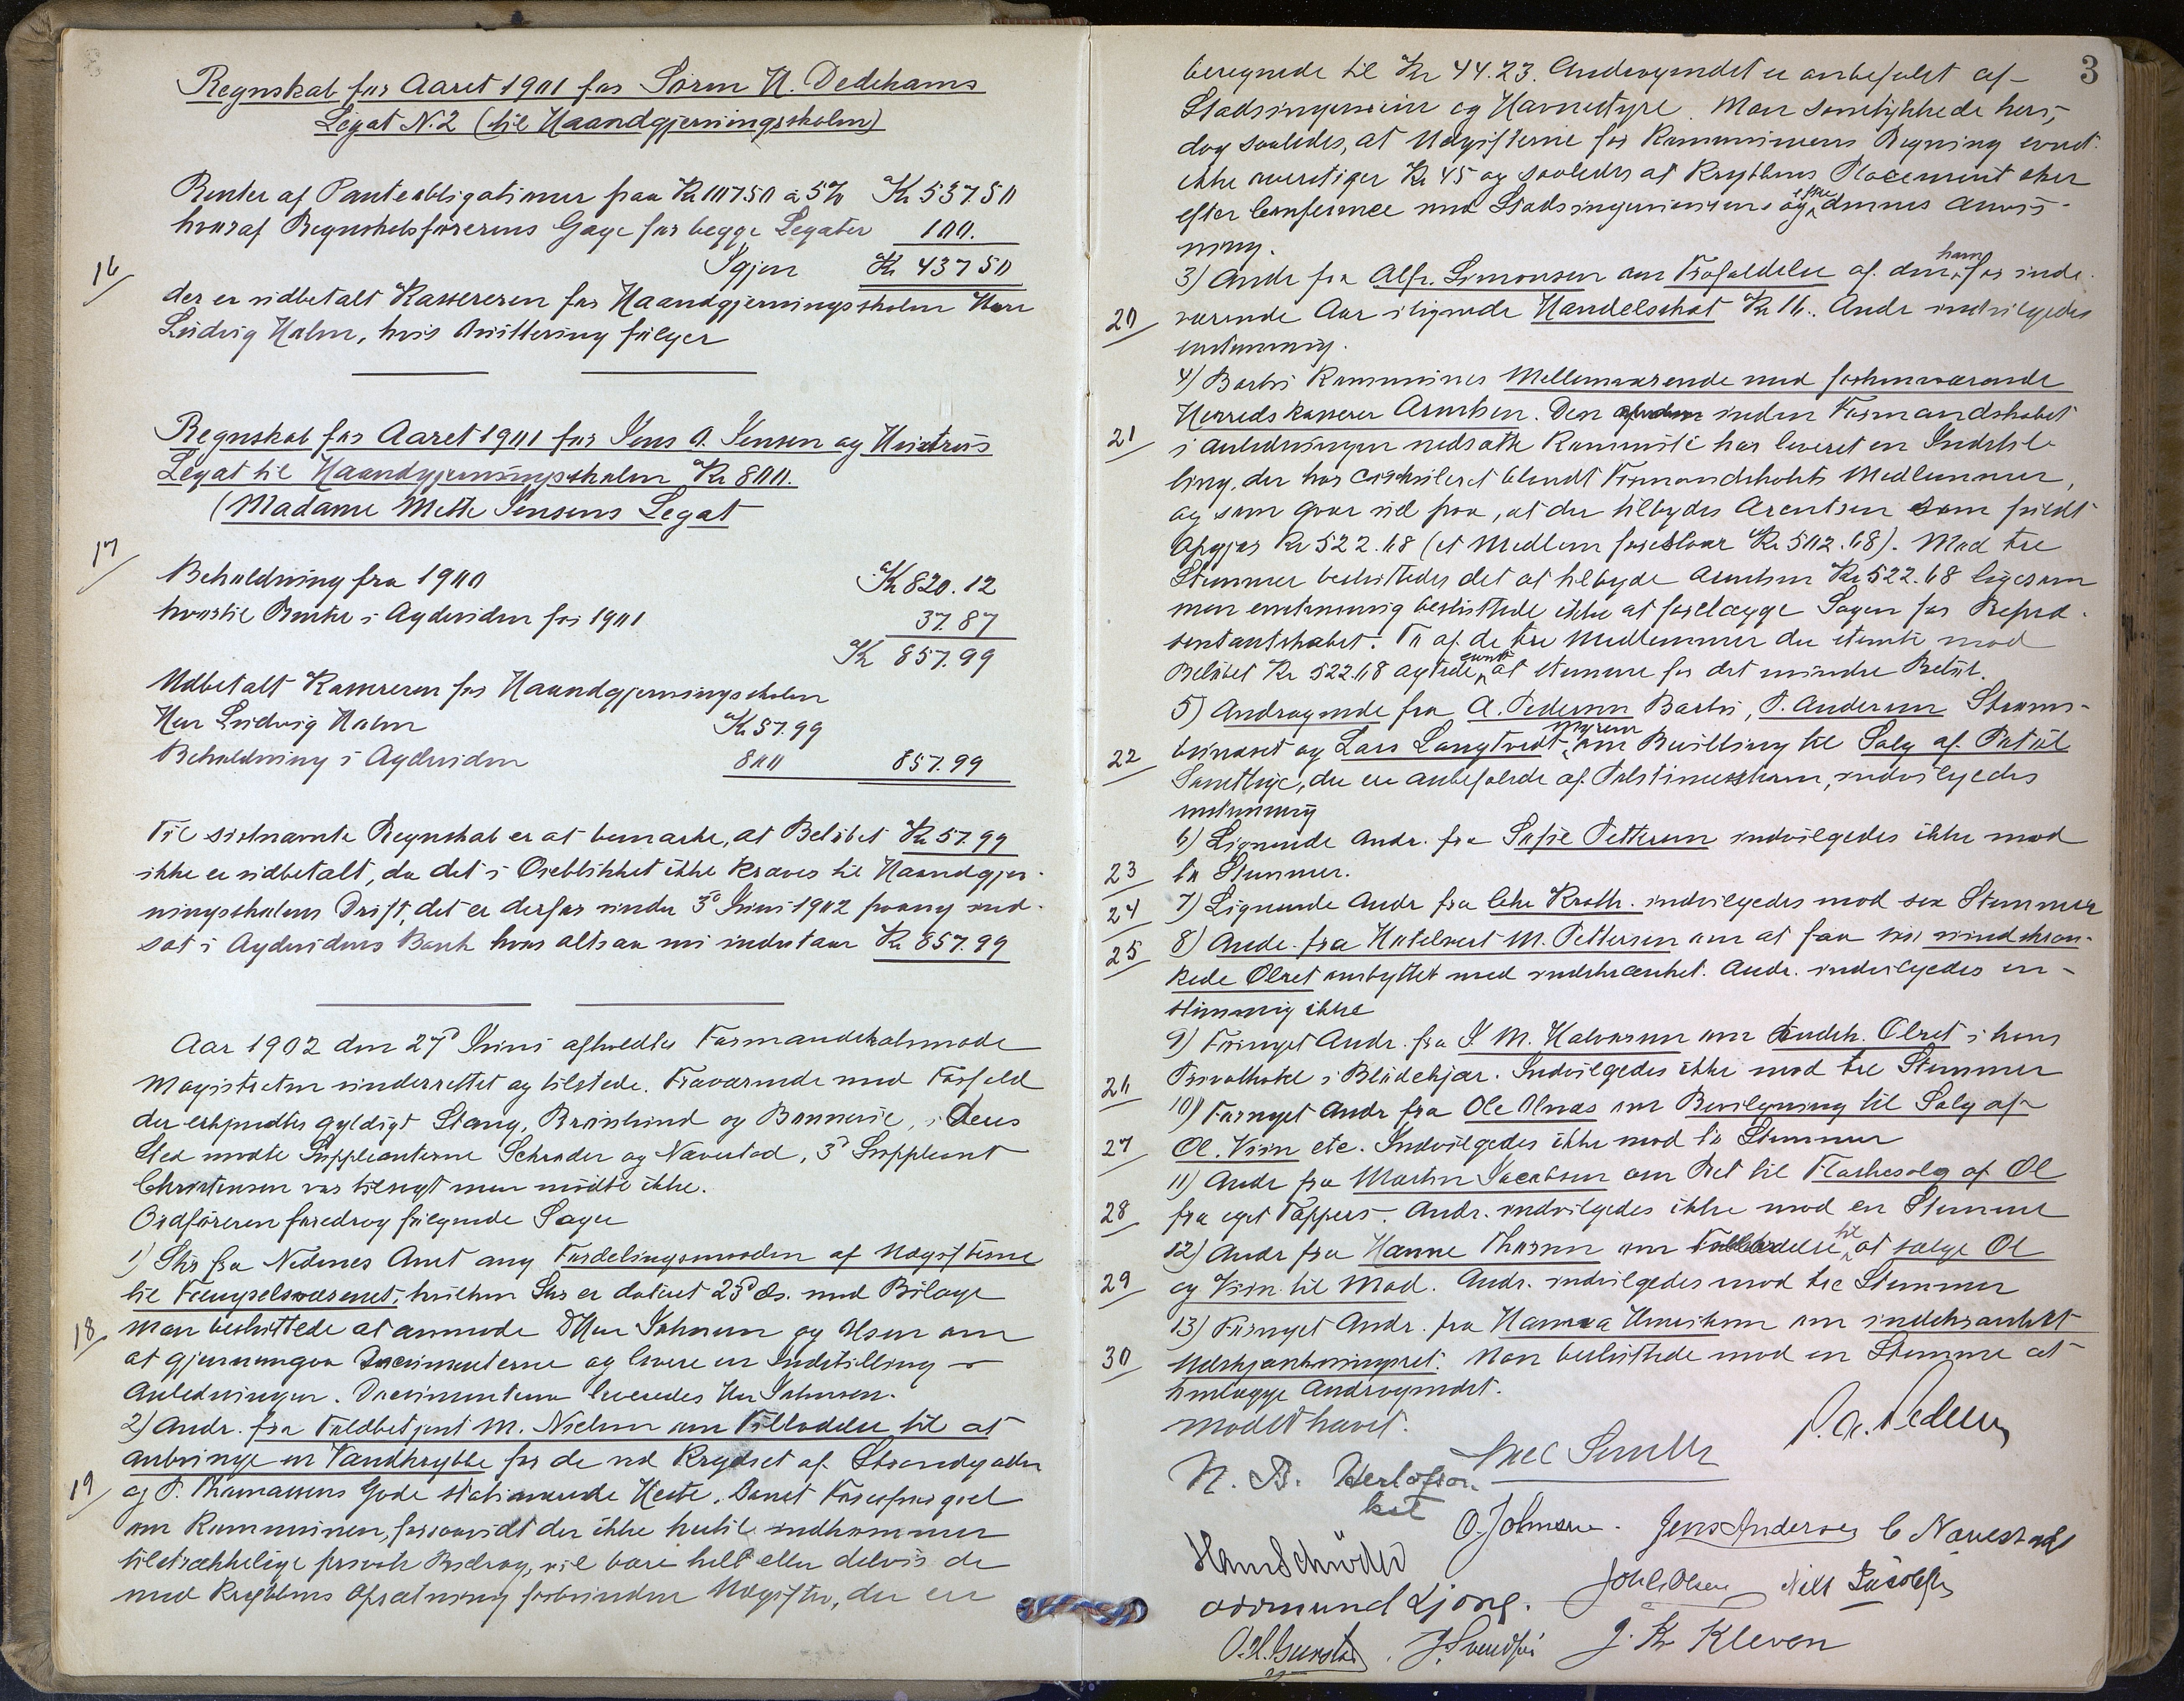 Regnskab for Aaret 1901 for Sørm H. Dedekams
Legat N.2 (til Haandgjerningsskolen)
Renter af Panteobligationer paa Kr 10750 à 5% Kr 537.50
hvoraf Regnskabsførerens Gage for begge Legater 100.
Igjen Kr 437 50
16
der er udbetalt Kassereren for Haandgjerningsskolen Herr
Ludvig Holm, hvis Kvittering følger
Regnskab for Aaret 1901 for Jens A. Jensen og Hustrus
Legat til Haandgjerningsskolen Kr 800.
(Madame Mette Jensens Legat
17
Beholdning fra 1900 Kr 820.12
hvortil Renter i Agdesiden for 1901 37.87
Kr 857.99
Udbetalt Kassereren for Haandgjerningsskolen
Herr Ludvig Holm Kr 57.99
Beholdning i Agdesiden 800 857.99
Til sidstnævnte Regnskab er at bemærke, at Beløbet Kr 57.99
ikke er udbetalt, da det i Øieblikket ikke kræves til Haandgjer-
ningsskolens Drift, det er derfor under 3d Juni 1902 paany ind-
sat i Agdesidens Bank hvor altsaa nu indestaar Kr 857.99
Aar 1902 den 27d Juni afholdtes Formandskabsmøde
Magistraten underrettet og tilstede. Fraværende med Forfald
der erkjendtes gyldigt Stang, Brønlund og Bonnevie, i deres
Sted mødte Suppleanterne Schrøder og Navestad, 3d Suppleant
Christensen var tilsagt men mødte ikke.
Ordføreren foredrog følgende Sager
1) Skr fra Nedenes Amt ang Fordelingsmaaden af Udgifterne
til Fængselsvæsenet, hvilken Skr er dateret 23d ds. med Bilage
18 Man besluttede at anmode DHerr Johnsen og Olsen om
at gjennemgaa Documenterne og levere en Indstilling i
Anledningen. Documenterne leveredes Herr Johnsen.
2) Andr. fra Toldbetjent M. Nielsen om Tilladelse til at
anbringe en Vandkrybbe for de ved Krydset af Strandgaden
19 og P. Thomassens Gade stationerende Heste. Samt Forespørgsel
om Kommunen, forsaavidt der ikke hertil indkommer
tilstrækkelige private Bidrag, vil bære helt eller delvis de
med Krybbens Opsætning forbundne Udgifter, der er
3
beregnede til Kr 44.23. Andragendet er anbefalet af
Stadsingeniøren og Havnestyre. Man samtykkede heri,
dog saaledes, at Udgifterne for Kommunens Regning event.
ikke overstiger Kr 45 og saaledes at Krybbens Placement sker
efter Conference med Stadsingeniøren og efter dennes Anvis-
ning.
3) Andr fra Alfr. Simonsen om Frafaldelse af den ham for inde-
20 værende Aar ilignede Handelsskat Kr 16. Andr indvilgedes
enstemmig.
4) Barbu Kommunes Mellemværende med forhenværende
Herredskasserer Arentsen. Den inden Formandskabet
21 i Anledningen nedsatte Kommité har leveret en Indstil-
ling, der har cirkuleret blandt Formandskabets Medlemmer,
og som gaar ud paa, at der tilbydes Arentsen som fuldt
Opgjør Kr 522.68 (et Medlem foreslaar Kr 502.68). Mod tre
Stemmer besluttedes det at tilbyde Arentsen Kr 522.68 ligesom
man enstemmig besluttede ikke at forelægge Sagen for Repræ-
sentantskabet. To af de tre Medlemmer der stemte mod
Beløbet Kr 522.68 agtede event at stemme for det mindre Beløb.
5) Andragende fra A. Pedersen Barbu, P. Andersen Strøms-
22 buneset og Lars Langtvedt Myrene om Bevilling til Salg af Portøl
Samtlige, der ere anbefalede af Politimesteren, indvilgedes
enstemmig
6) Lignende Andr. fra Sofie Pettersen indvilgedes ikke mod
23 to Stemmer.
24 7) Lignende Andr fra Chr Krath. indvilgedes mod sex Stemmer
25 8) Andr. fra Hotelvert M. Pettersen om at faa sin uindskræn-
kede Ølret ombyttet med indskrænket. Andr. indvilgedes en-
stemmig ikke
9) Fornyet Andr. fra J. M. Halvorsen om indsk. Ølret i hans
26 Privathotel i Blødekjær. Indvilgedes ikke mod tre Stemmer
10) Fornyet Andr fra Ole Olnæs om Bevilgning til Salg af
27 Øl. Viin etc. Indvilgedes ikke mod to Stemmer
11) Andr fra Martin Jacobsen om Ret til Flaskesalg af Øl
28 fra eget Tapperi. Andr. indvilgedes ikke mod en Stemme
12) Andr fra Hanne Thorsen om Tilladelse til at sælge Øl
29 og Viin til Mad. Andr. indvilgedes mod tre Stemmer
13) Fornyet Andr. fra Hanna Henriksen om indskrænket
30 Udskjænkningsret. Man besluttede mod en Stemme at
henlægge Andragendet.
Mødet hævet.
P. A. Pedersen
N. B. Herlofson Axel Smith
kst
O. Johnsen. Jens Andersen C Navestad
Hans Schrøder
Johs. Olsen Nils Jacobsen
Osmund Ljøng.
O. H. Gunstad J. Svendsen J. Kr Kleven